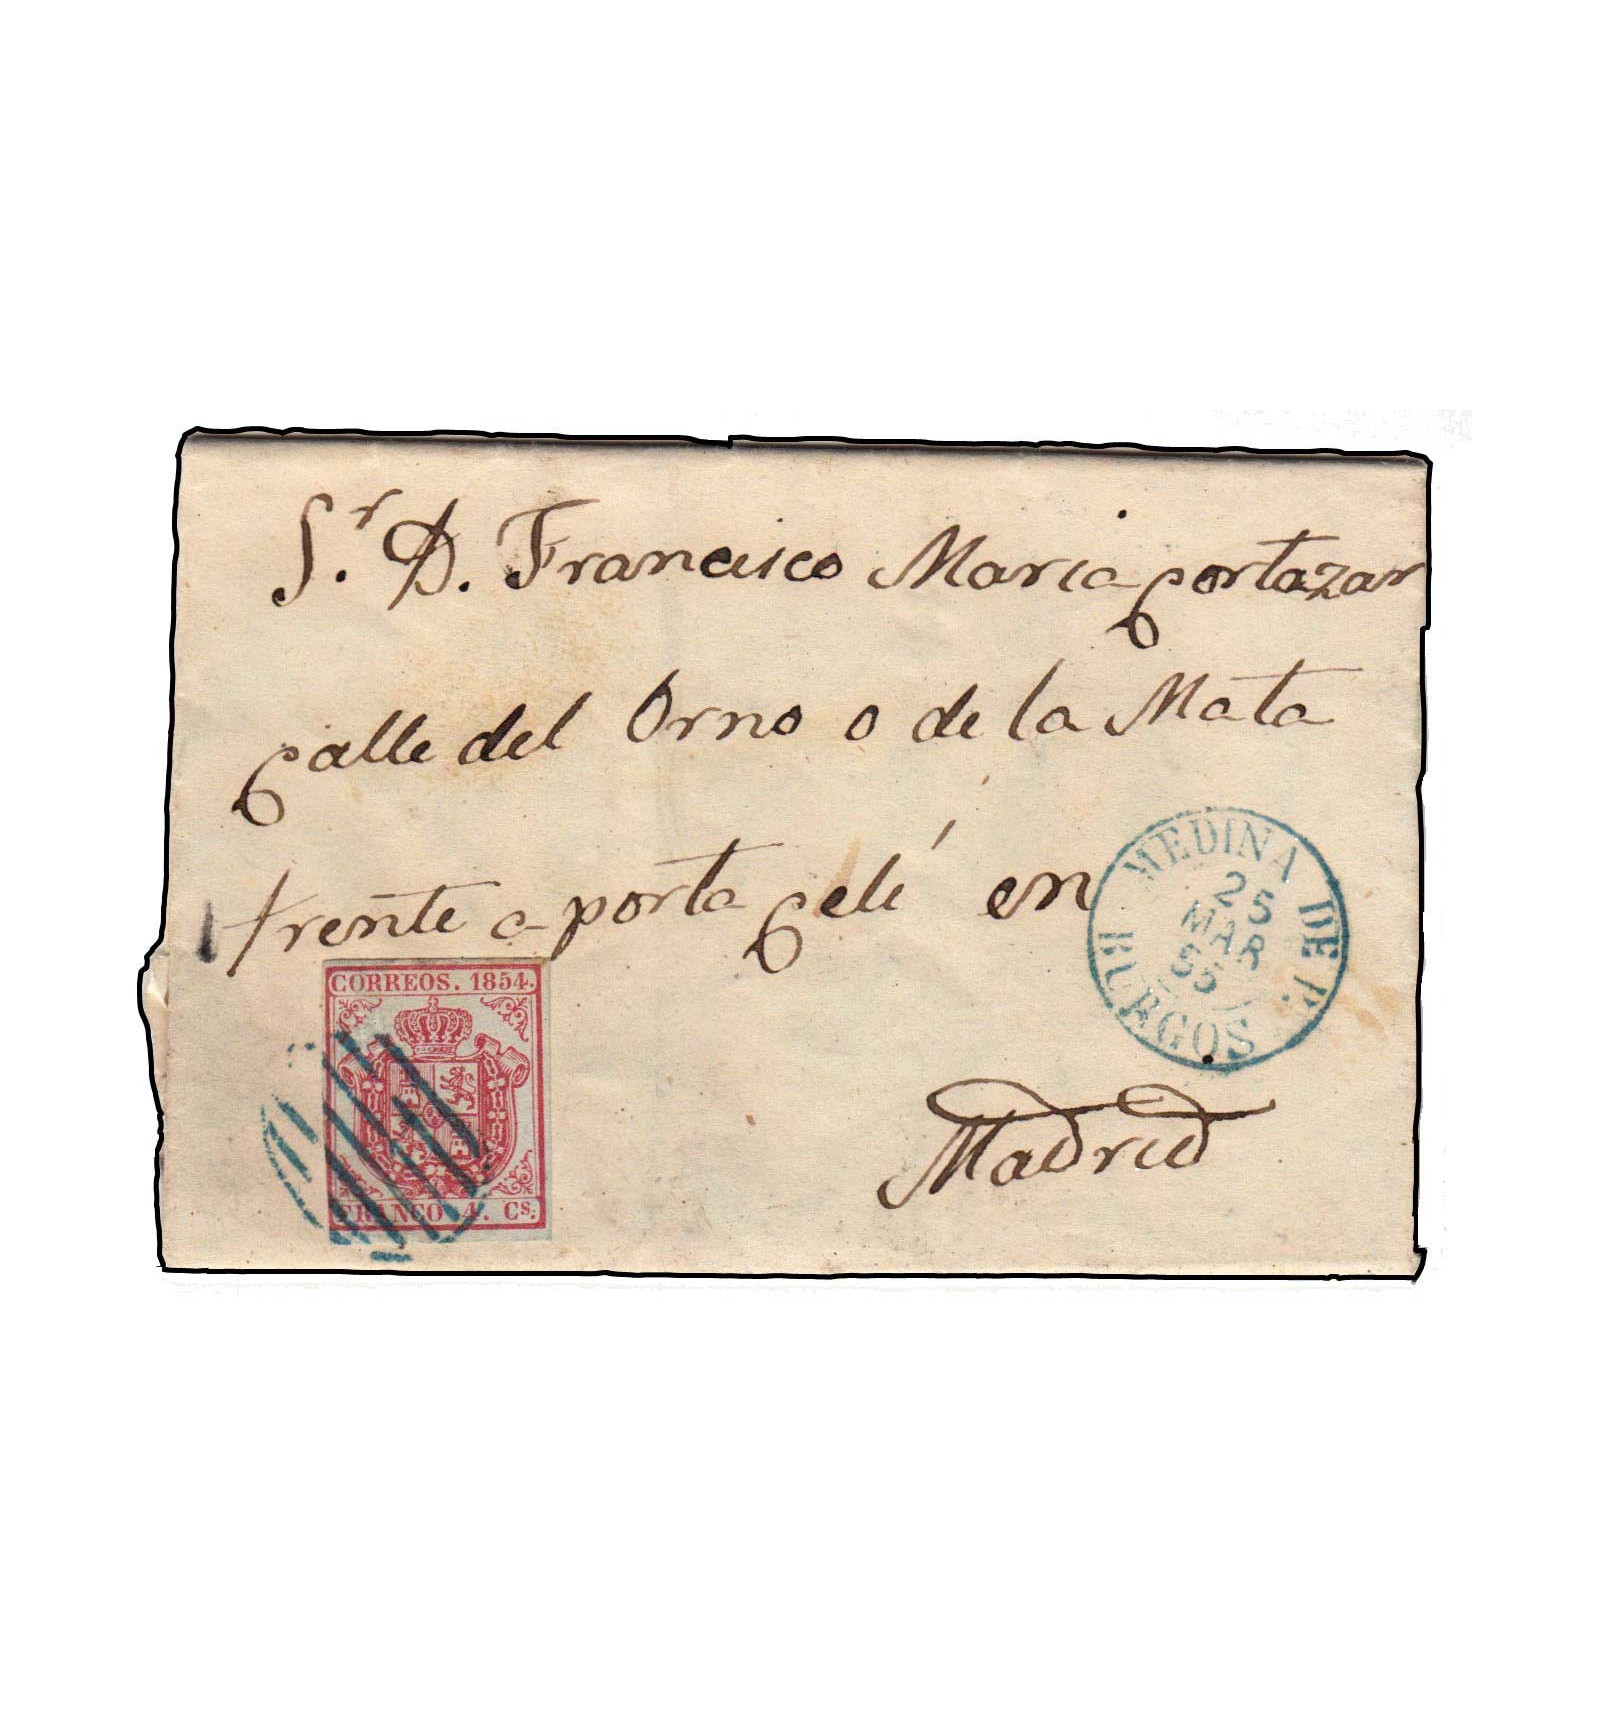 Sr. D. Francisco Maria Cortazar
Calle del Orno o de la Mata
frente a porta Celi en
MEDINA DE P.
25
MAR
55
BURGOS
CORREOS. 1854.
Madrid
FRANCO 4. Cs.